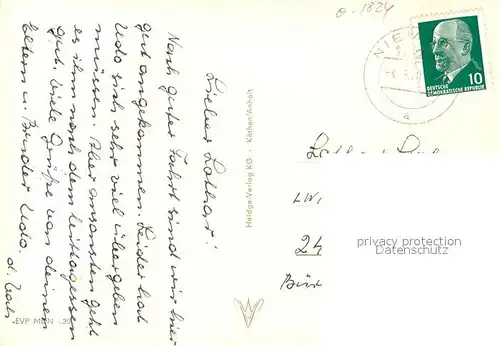 o-1824
NIEM
DEUTSCHE
DEMOKRATISCHE REPUBLIK
10
a
Lieber Lothar!
Nach guter Fahrt sind wir hier
gut angekommen. Leider hat
Udo sich sehr viel übergeben
müssen. Aber ansonsten geht
es ihm nach dem Mittagessen
gut. Viele Grüße von deinen
Eltern u. Bruder Udo.
Heldge-Verlag KG · Köthen/Anhalt
EVP MDN -,20
24
privacy protection
Datenschutz